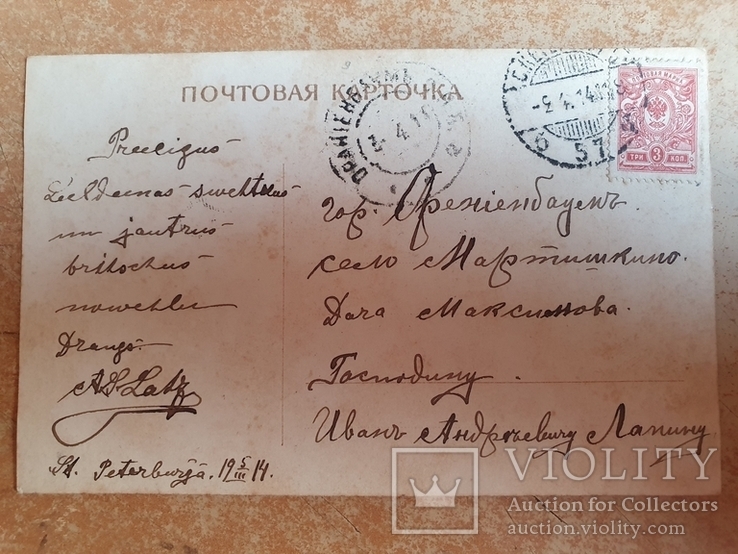 ПОЧТОВАЯ КАРТОЧКА
Preecigus
Leeldeenas swehtkus
un jautrus
brihschus
nowehlu
Draugs
Гор. Ораніенбаумъ.
село Мартышкино.
Дача Максимова.
Господину
Ивану Андреевичу Лапину
St. Peterburgâ. 19 5/III 14.
ОРАНІЕНБАУМЪ
3 4 14
-3.4.14
57
ПОЧТОВАЯ МАРКА
ТРИ 3 КОП.
VIOLITY
Auction for Collectors
auction.violity.com